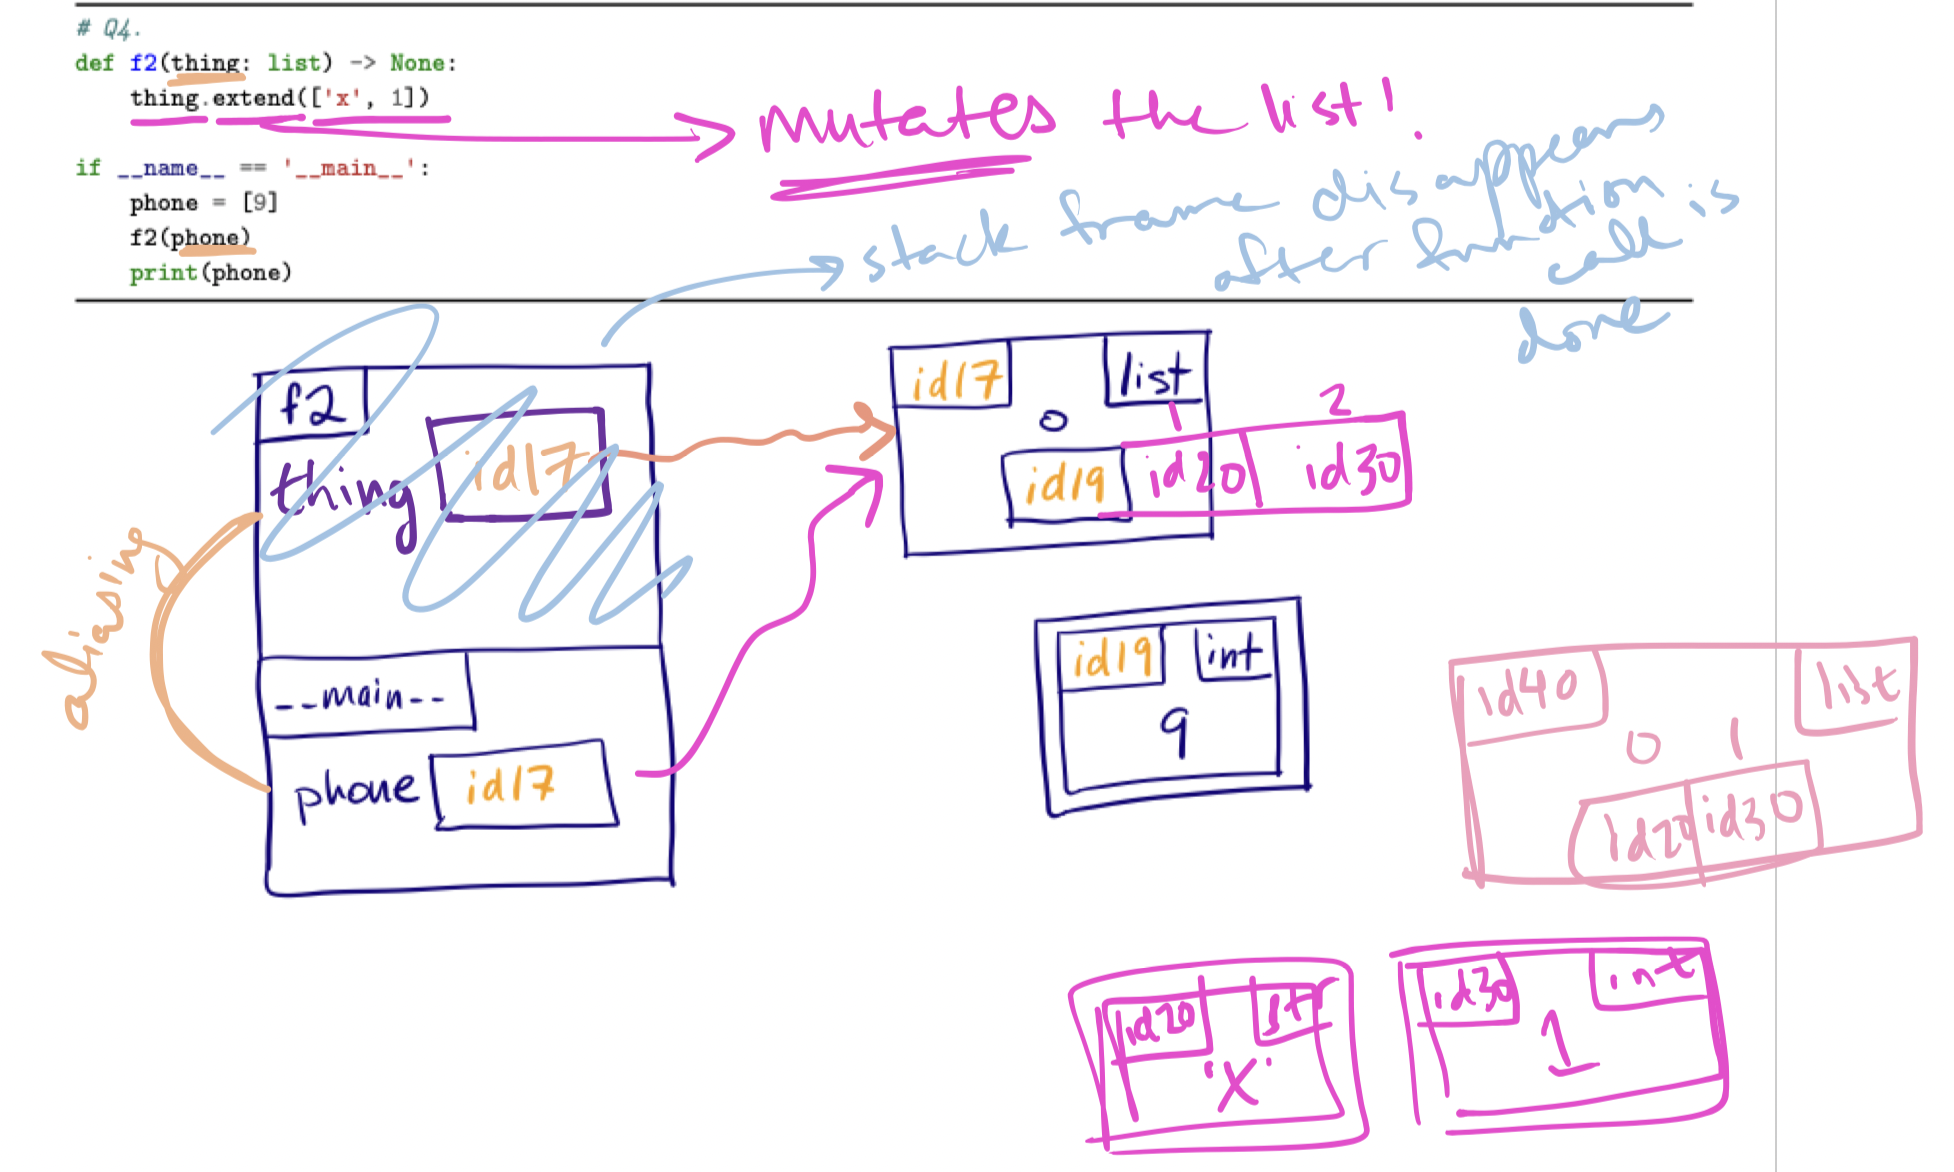 # Q4.
def f2(thing: list) -> None:
    thing.extend(['x', 1])
mutates the list!
if __name__ == '__main__':
    phone = [9]
    f2(phone)
    print(phone)
stack frame disappears
after function
call is
done
f2
thing id17
aliasing
__main__
phone id17
id17 list
0 1 2
id19 id20 id30
id19 int
9
id40 list
0 1
id20 id30
id20 str
'x'
id30 int
1